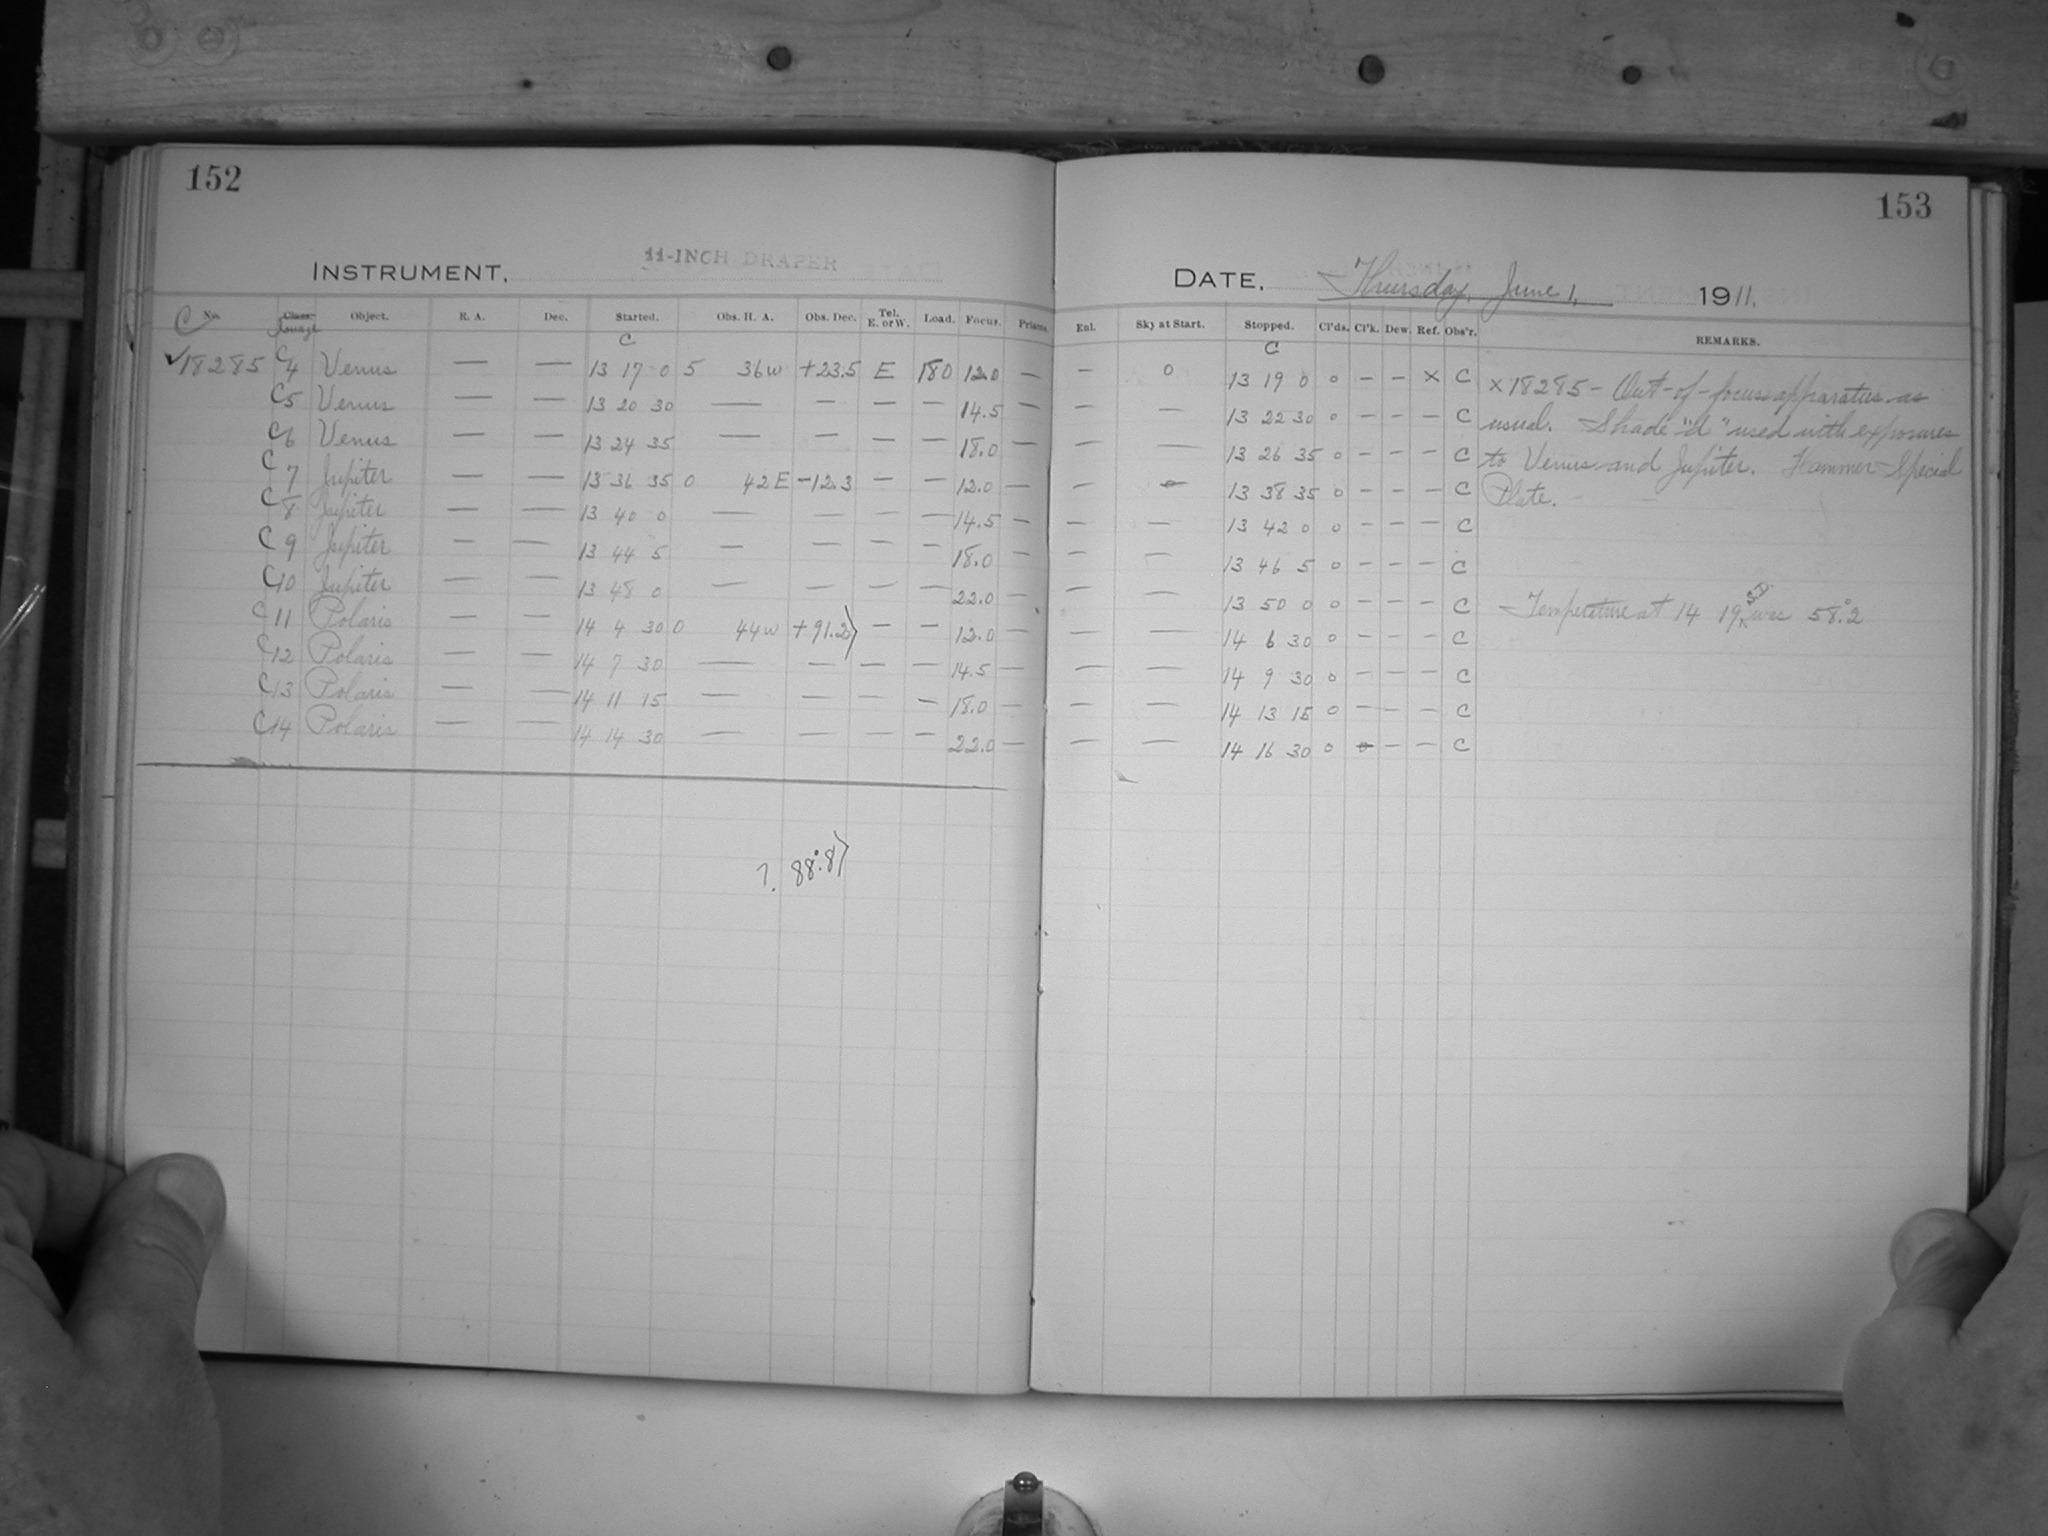 152
INSTRUMENT, 11-INCH DRAPER
C No. Class. Image Object. R. A. Dec. Started. Obs. H. A. Obs. Dec. Tel. E. or W. Load. Focus. Prisms.
C
✓18285 C4 Venus — — 13 17 0 5 36 W +23.5 E 180 12.0 —
C5 Venus — — 13 20 30 — — — — 14.5 —
C6 Venus — — 13 24 35 — — — — 18.0 —
C7 Jupiter — — 13 36 35 0 42 E -12.3 — — 12.0 —
C8 Jupiter — — 13 40 0 — — — — 14.5 —
C9 Jupiter — — 13 44 5 — — — — 18.0 —
C10 Jupiter — — 13 48 0 — — — — 22.0 —
C11 Polaris — — 14 4 30 0 44 W +91.2) — — 12.0 —
C12 Polaris — — 14 7 30 — — — — 14.5 —
C13 Polaris — — 14 11 15 — — — — 18.0 —
C14 Polaris — — 14 14 30 — — — — 22.0 —
?. 88°.8)
153
DATE, Thursday, June 1, 1911.
Enl. Sky at Start. Stopped. Cl'ds. Cl'k. Dew. Ref. Obs'r. REMARKS.
C
— 0 13 19 0 0 — — × C × 18285 - Out-of-focus apparatus as
— — 13 22 30 0 — — — C usual. Shade "d" used with exposures
— — 13 26 35 0 — — — C to Venus and Jupiter. Hammer Special
— — 13 38 35 0 — — — C Plate.
— — 13 42 0 0 — — — C
— — 13 46 5 0 — — — C
— — 13 50 0 0 — — — C Temperature at 14 19 was 58°.2
— — 14 6 30 0 — — — C
— — 14 9 30 0 — — — C
— — 14 13 15 0 — — — C
— — 14 16 30 0 — — — C